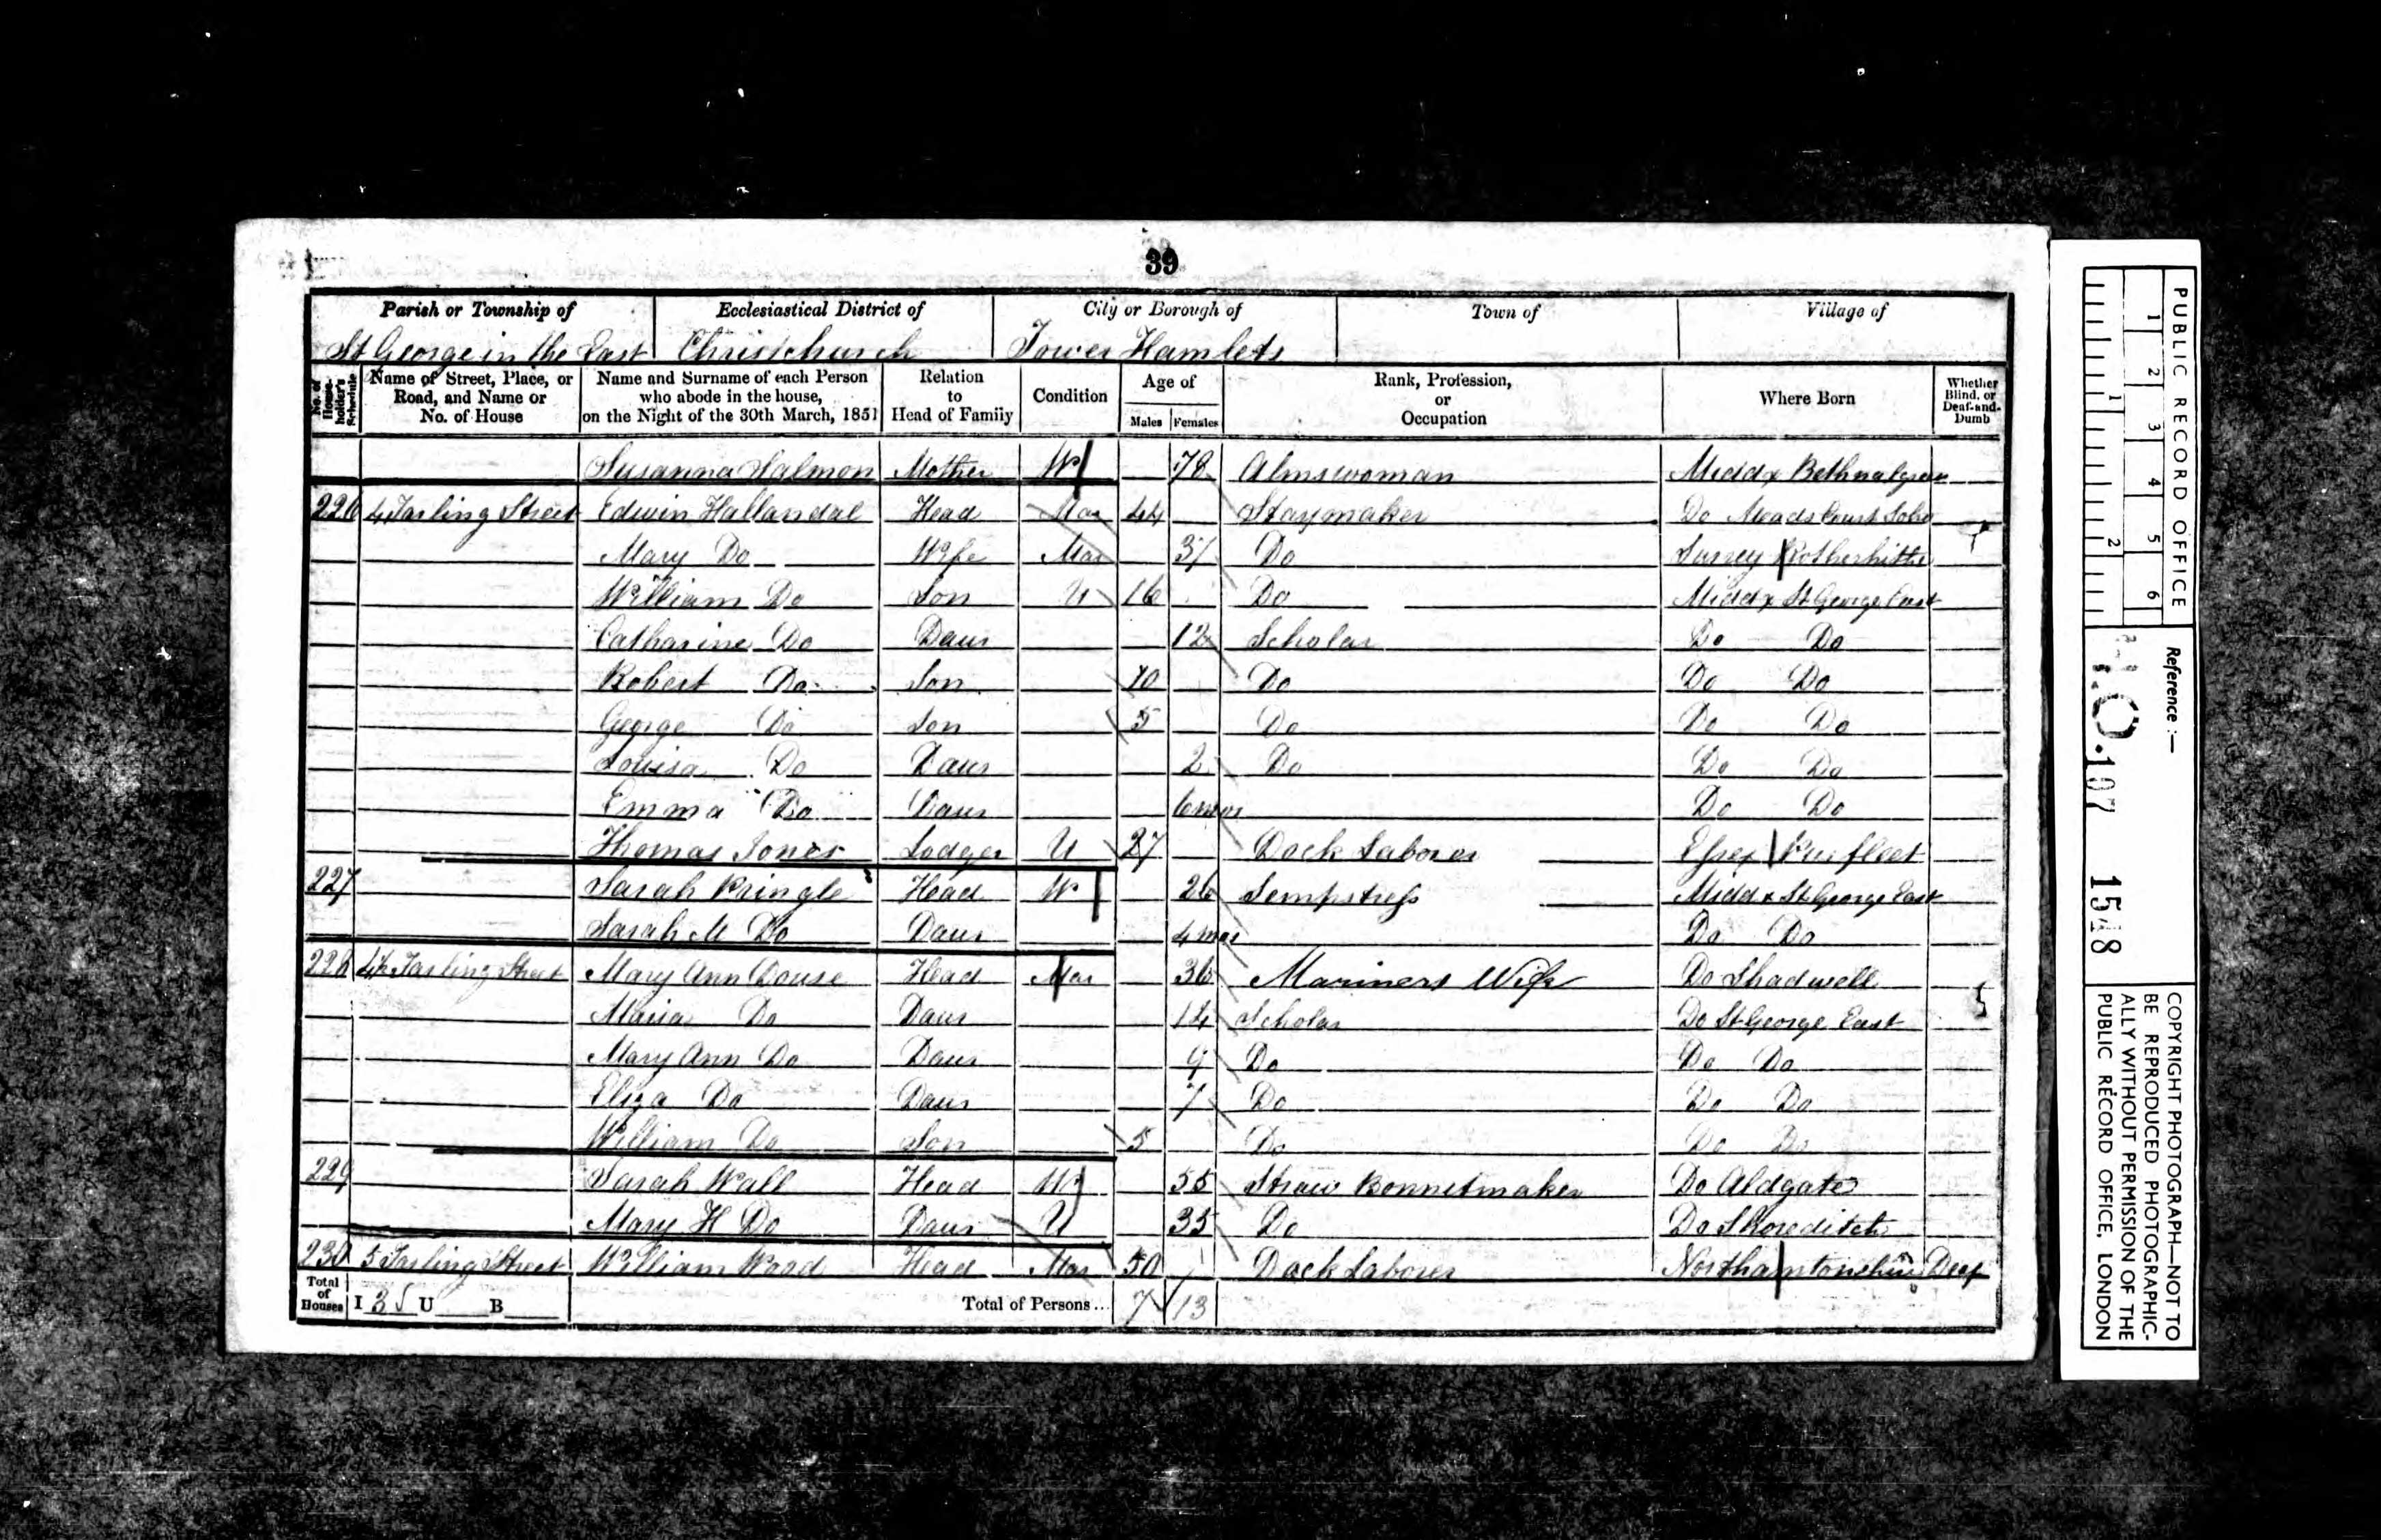 39
Parish or Township of Ecclesiastical District of City or Borough of Town of Village of
St George in the East Christchurch Tower Hamlets
No. of Householder's Schedule Name of Street, Place, or Road, and Name or No. of House Name and Surname of each Person who abode in the house, on the Night of the 30th March, 1851 Relation to Head of Family Condition Age of Males Females Rank, Profession, or Occupation Where Born Whether Blind, or Deaf-and-Dumb
Susanna Salmon Mother W 78 Almswoman Middx Bethnalgreen
226 4 Tarling Street Edwin Hallandal Head Mar 44 Staymaker Do Meads Court Soho
Mary Do Wife Mar 37 Do Surrey Rotherhithe
William Do Son U 16 Do Middx St George East
Catharine Do Daur 12 Scholar Do Do
Robert Do Son 10 Do Do Do
George Do Son 5 Do Do Do
Louisa Do Daur 2 Do Do Do
Emma Do Daur 6 mos Do Do
Thomas Jones Lodger U 27 Dock Laborer Essex Purfleet
227 Sarah Pringle Head W 26 Sempstress Middx St George East
Sarah M Do Daur 4 mos Do Do
228 4½ Tarling Street Mary Ann Douse Head Mar 36 Mariners Wife Do Shadwell
Maria Do Daur 14 Scholar Do St George East
Mary Ann Do Daur 9 Do Do Do
Eliza Do Daur 7 Do Do Do
William Do Son 5 Do Do Do
229 Sarah Wall Head W 55 Straw Bonnetmaker Do Aldgate
Mary H Do Daur U 35 Do Do Shoreditch
230 5 Tarling Street William Wood Head Mar 50 Dock Laborer Northamtonshire Deef
Total of Houses I 3 U B Total of Persons... 7 13
PUBLIC RECORD OFFICE
1 2 3 4 5 6
1 2
Reference :—
H.O. 107 1548
COPYRIGHT PHOTOGRAPH—NOT TO
BE REPRODUCED PHOTOGRAPHIC-
ALLY WITHOUT PERMISSION OF THE
PUBLIC RECORD OFFICE, LONDON